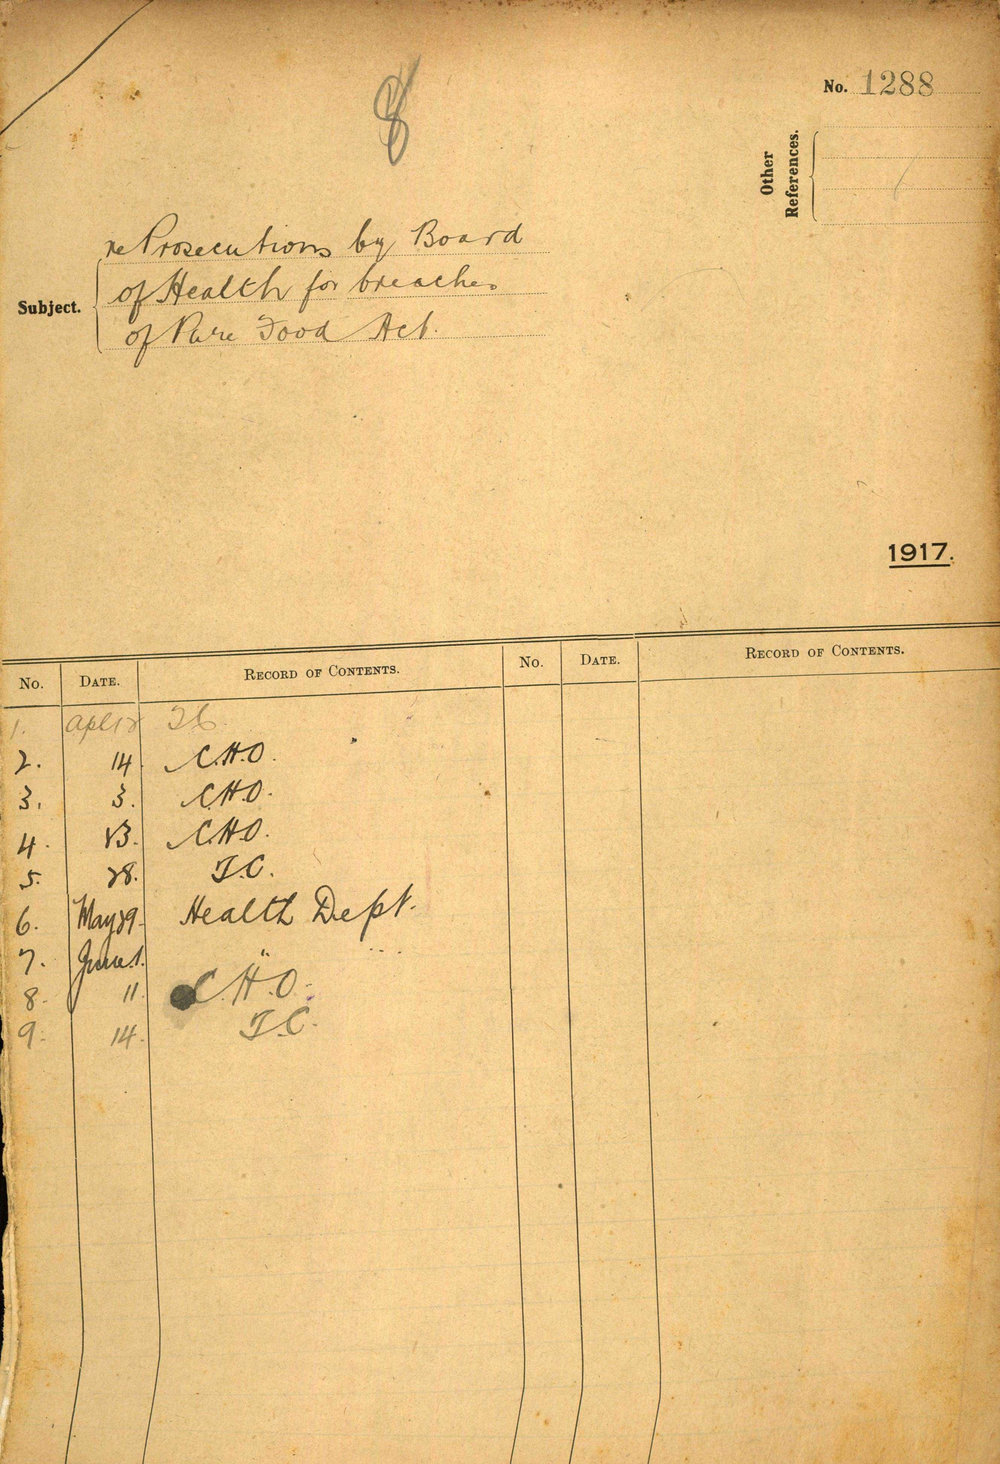 8
No. 1288
Other
References.
re Prosecutions by Board
of Health for breaches
of Pure Food Act.
Subject.
1917.
No. DATE. RECORD OF CONTENTS. No. DATE. RECORD OF CONTENTS.
1. Apl 12 T.C.
2. 14 C.H.O.
3. 3. C.H.O.
4. 23. C.H.O.
5. 28. T.C.
6. May 29. Health Dept.
7. June 1. "
8. 11. C.H.O.
9. 14. T.C.